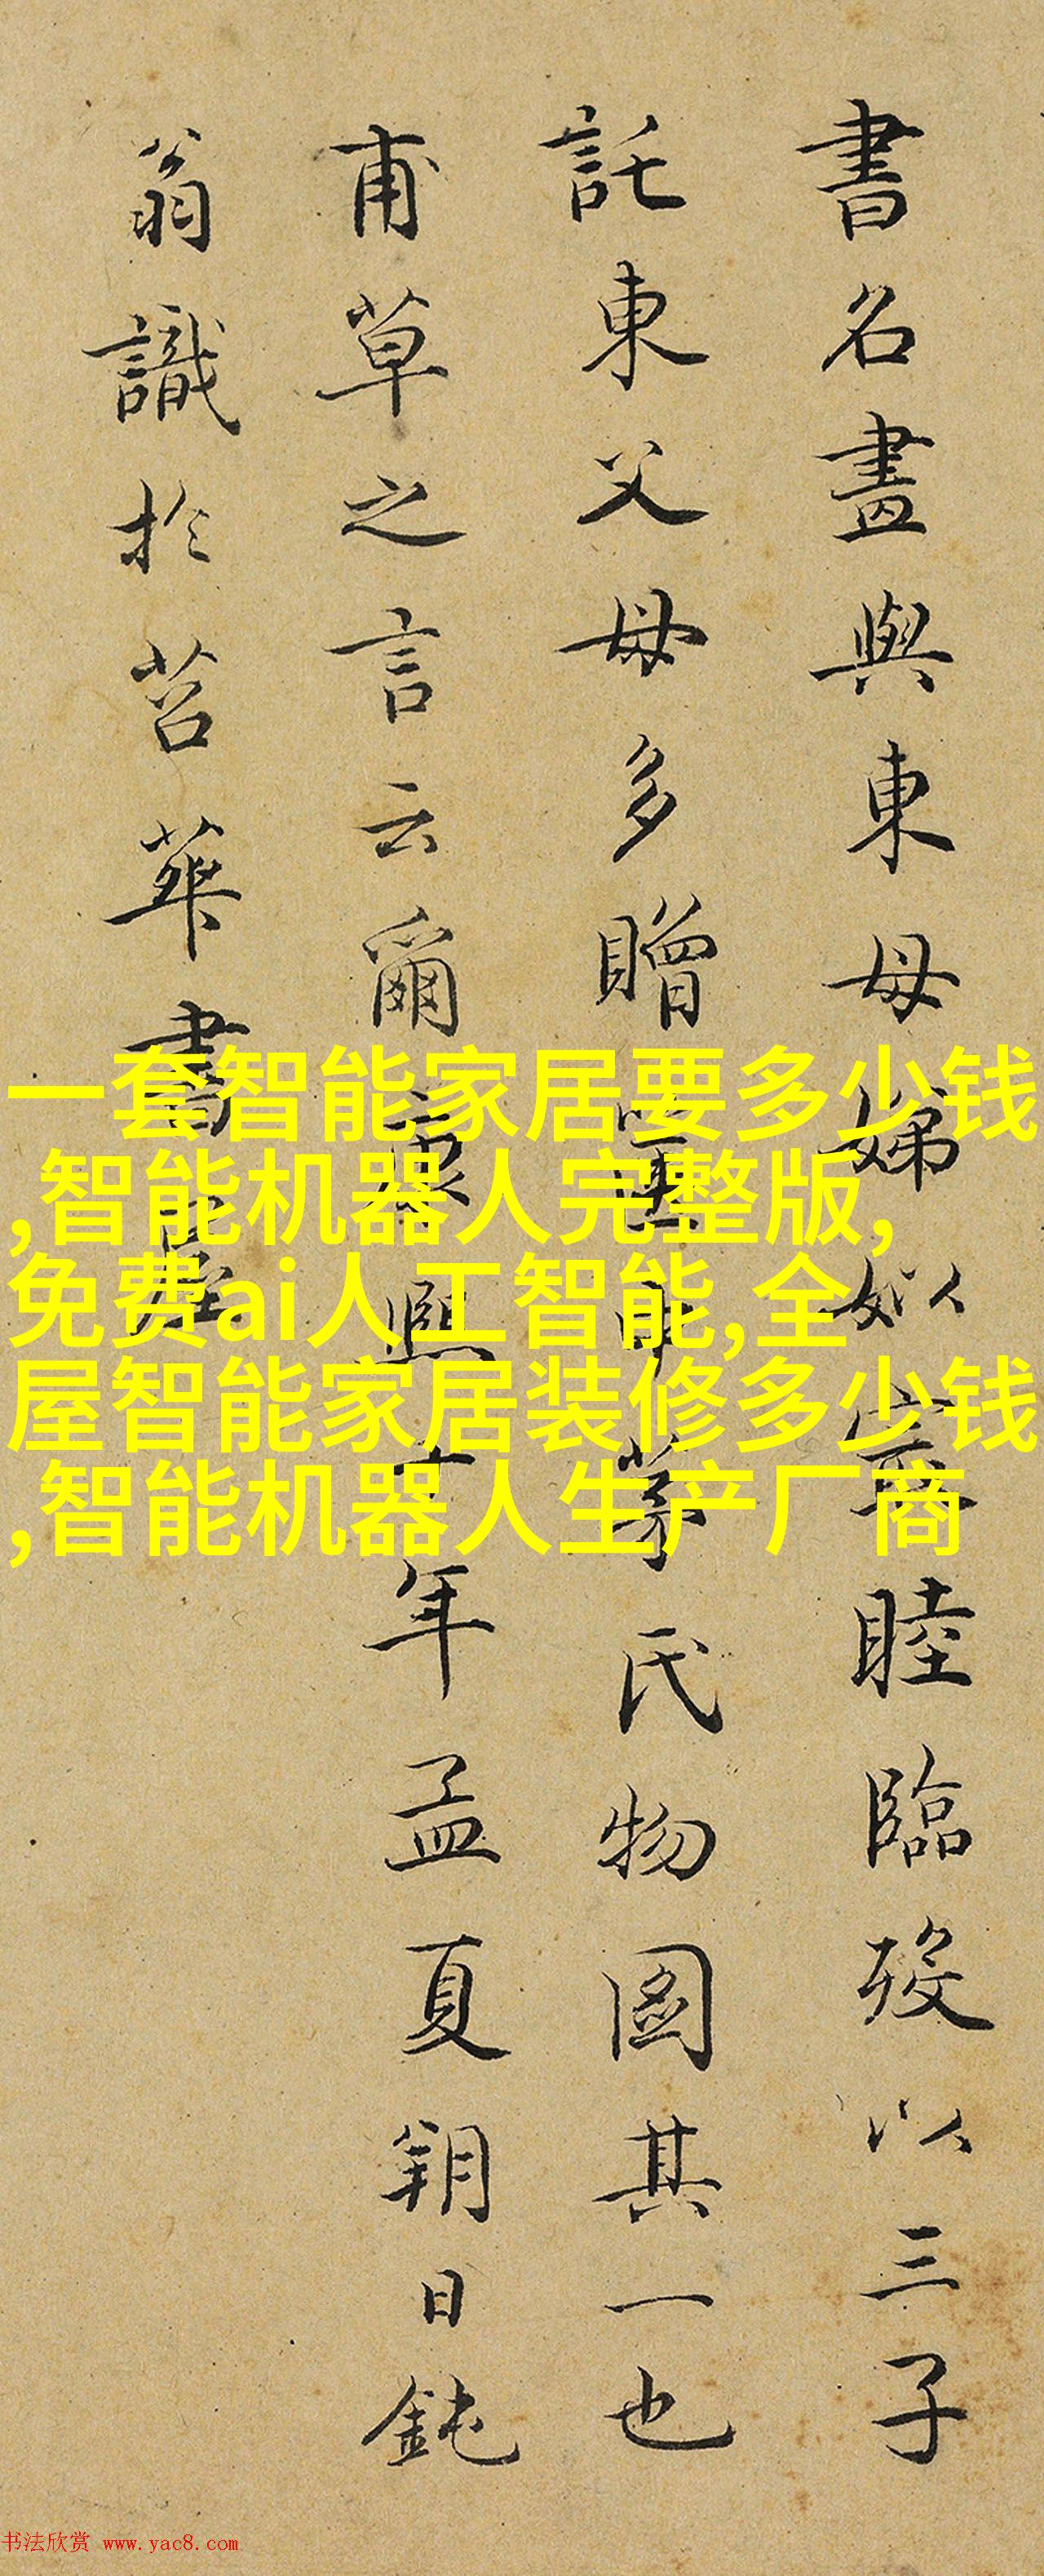 書名畫與東母娣姒寔睦臨歿以三子
託東父母多贈畫茅氏物圖其一也
甫草之言云爾康熙十年孟夏朔日鈍
翁識於苕華書屋
一套智能家居要多少钱
,智能机器人完整版,
免费ai人工智能,全
屋智能家居装修多少钱
,智能机器人生产厂商
书法欣赏 www.yac8.com